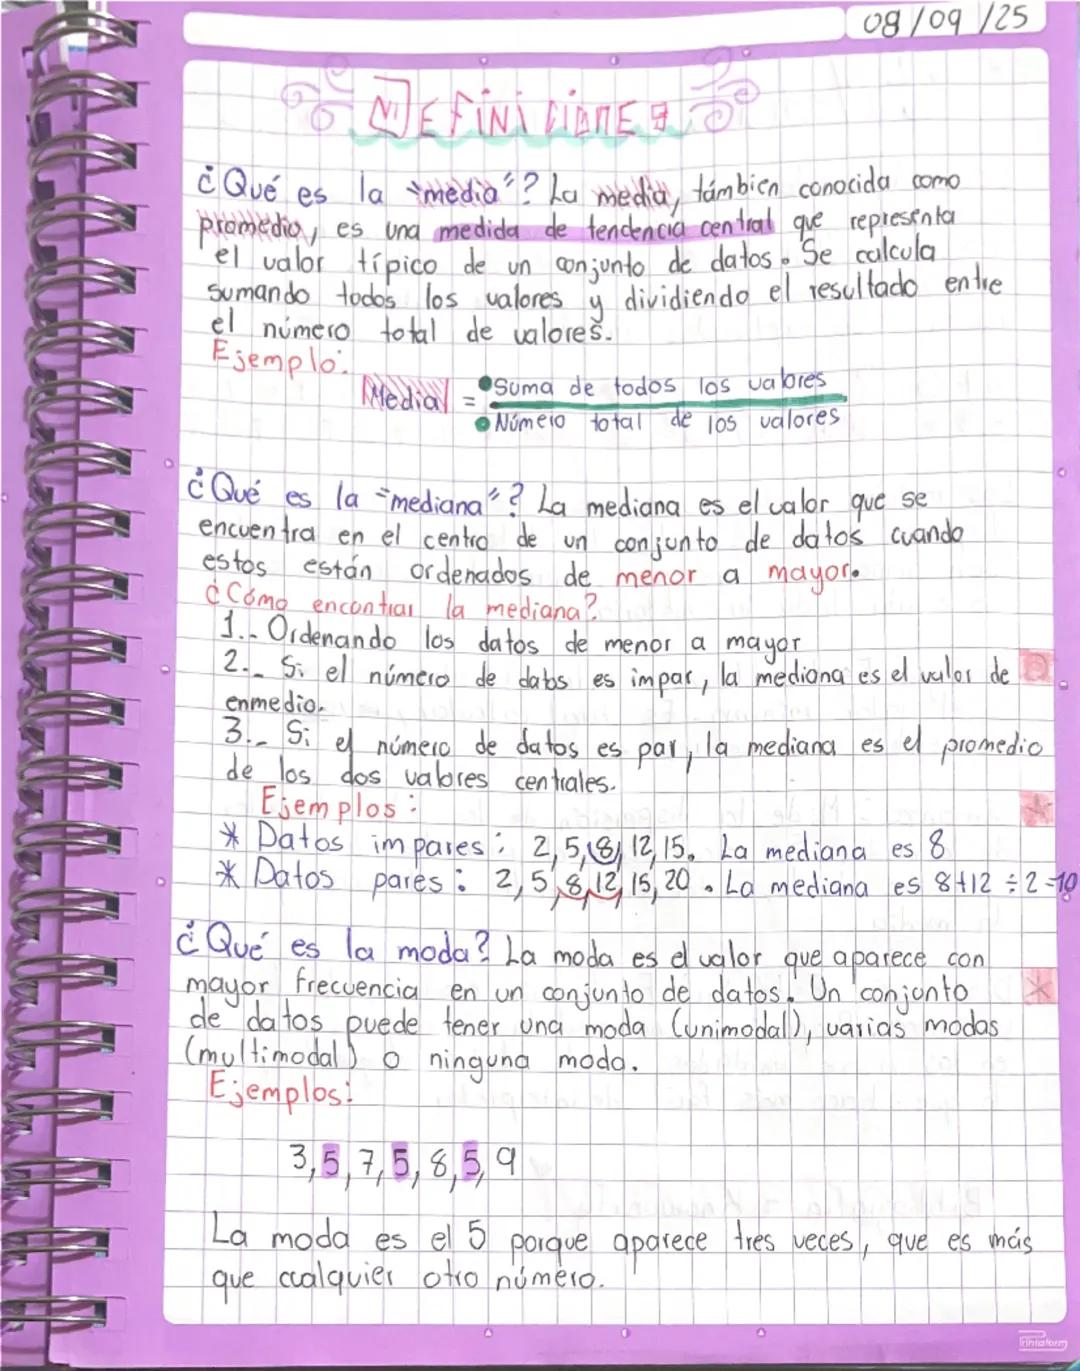 08/09/25
Definiciones
¿Qué es la "media"? La media, támbien conocida como
promedio, es una medida de tendencia central que representa
el valor típico de un conjunto de datos. Se calcula
sumando todos los valores y dividiendo el resultado entre
el número total de valores.
Ejemplo:
Media = Suma de todos los valores
Número total de los valores
¿Qué es la "mediana"? La mediana es el valor que se
encuentra en el centro de un conjunto de datos cuando
estos están ordenados de menor a mayor.
¿Cómo encontrar la mediana?
1.- Ordenando los datos de menor a mayor
2.- Si el número de datos es impar, la mediana es el valor de
enmedio.
3.- Si el número de datos es par, la mediana es el promedio
de los dos valores centrales.
Ejemplos:
* Datos impares: 2,5,8,12,15. La mediana es 8
* Datos pares: 2,5,8,12,15,20. La mediana es 8+12÷2=10
¿Qué es la moda? La moda es el valor que aparece con
mayor frecuencia en un conjunto de datos. Un conjunto
de datos puede tener una moda (unimodal), varias modas
(multimodal) o ninguna moda.
Ejemplos:
3,5,7,5,8,5,9
La moda es el 5 porque aparece tres veces, que es más
que cualquier otro número.
Printaform